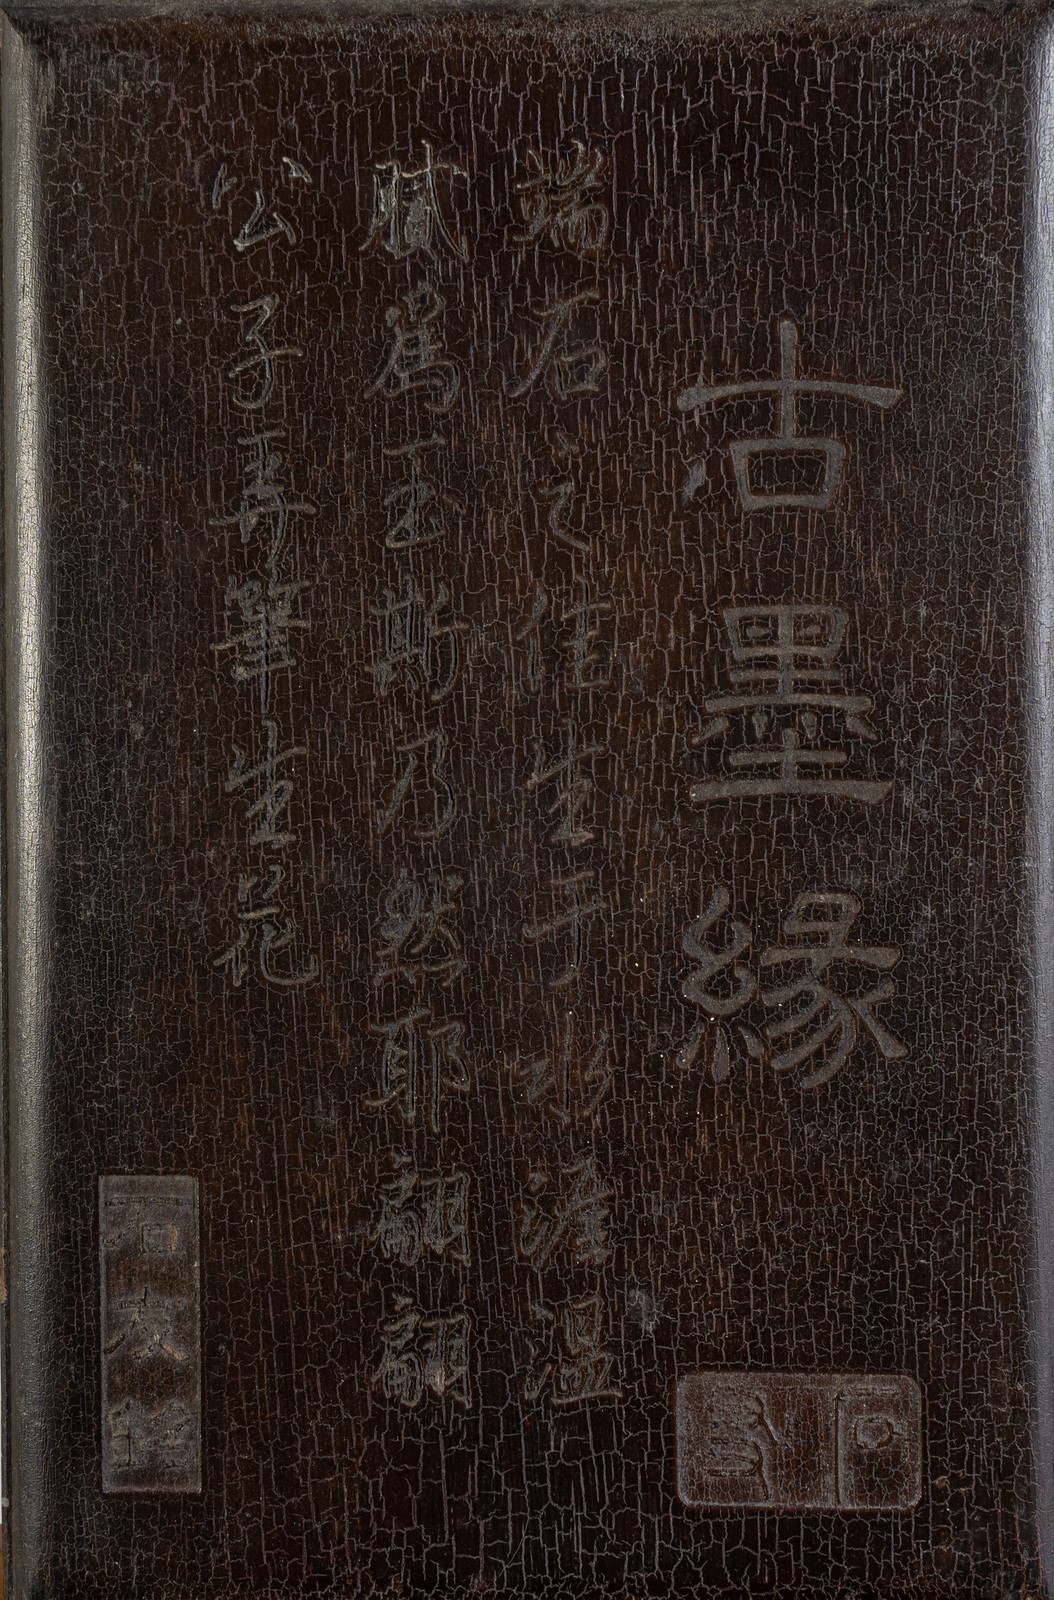 古墨緣
端石之佳生于水涯溫
膩為玉斯乃然耶翩翩
公子弄筆生花
石友